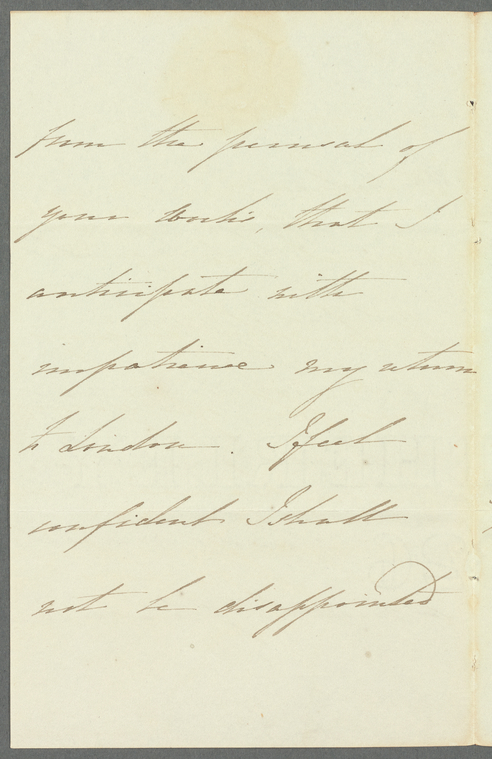 from the perusal of
your works, that I
anticipate with
impatience my return
to London. I feel
confident I shall
not be disappointed